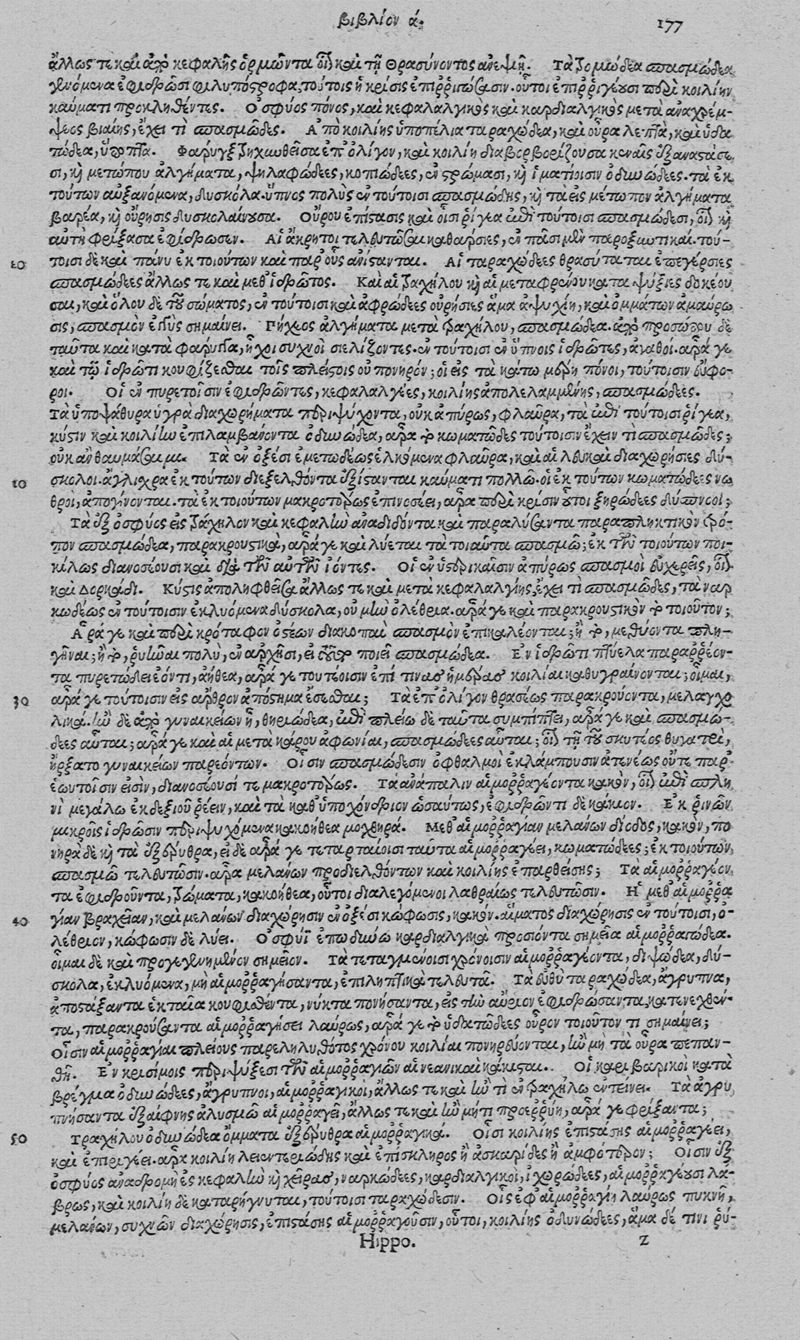 βιβλίον ά. 177
ἄλλως τε καὶ ἀπὸ κεφαλῆς ὁρμῶντα οἷα καὶ τῇ Θρασύνοντος Τὰ τρομώδεα σπασμώδεα
γενόμενα ἐφιδρῶσι φιλυπόστροφα, τούτοις ἡ κρίσις ἐπιρριγώσασιν. οὗτοι ἐπιρριγέουσι περὶ κοιλίην
καύματι προκληθέντες. Ὀσφύος πόνος, καὶ κεφαλαλγικὸς καὶ καρδιαλγικὸς μετὰ ἀναχρέμ-
ψιος βιαίης, ἔχει τὶ σπασμῶδες. Ἀπὸ κοιλίης ὑποπέλια ταραχώδεα, καὶ οὖρα λεπτὰ, καὶ ὑδα
τώδεα, ὕποπτα. Φάρυγξ τρηχυνθεῖσα ἐπ' ὀλίγον, καὶ κοιλίη διαβορβορίζουσα κεναῖς ἐξαναστάσε-
σι, καὶ μετώπου ἀλγήματα, ψηλαφώδεες, κοπιώδεες, ἐν στρώμασι, καὶ ἱματίοισιν ὀδυνώδεες. τὰ ἐκ
τούτων αὐξανόμενα, δύσκολα. ὕπνος πολὺς ἐν τούτοισι σπασμώδης, καὶ τὰ εἰς μέτωπον ἀλγήματα
βαρέα, καὶ οὔρησις δυσκολαίνουσα. Οὔρου ἐπίστασις καὶ οἷσι ῥίγεα ἐπὶ τούτοισι σπασμώδεσι, οἷα καὶ
αὐτὴ φρίξασα ἐφίδρωσεν. Αἱ ἄκρητοι τελευτῶσαι καθάρσιες, ἐν πᾶσι μὲν παροξυντικαί. του-
10 τοισι δὲ καὶ πάνυ ἐκ τοιούτων καὶ παρ' οὖς ἀνίστανται. Αἱ ταραχώδεες θρασύταται ἐπεγέρσιες
σπασμώδεες ἄλλως τε καὶ μεθ' ἱδρῶτος. Καὶ αἱ τραχήλου καὶ αἱ μεταφρένου καταψύξιες δοκέου
σαι, καὶ ὅλου δὲ τοῦ σώματος, ἐν τούτοισι καὶ ἀφρώδεες οὐρήσιες ἅμα ἀψυχίῃ, καὶ ὀμμάτων ἀμαύρω
σις, σπασμὸν ἐγγὺς σημαίνει. Πήχεος ἀλγήματα μετὰ τραχήλου, σπασμώδεα. ἀπὸ προσώπου δὲ
ταῦτα καὶ κατὰ φάρυγγα, ἦχοι συχνοὶ σιελίζοντες. ἐν τούτοισι ἐν ὕπνοις ἱδρῶτες, ἀγαθοί. ἆρά γε
καὶ τῷ ἱδρῶτι κουφίζεσθαι τοῖς πλείστοις οὐ πονηρόν; οἱ εἰς τὰ κάτω μέρη πόνοι, τούτοισιν εὔφο-
ροι. Οἱ ἐν πυρετοῖσιν ἐφιδρῶντες, κεφαλαλγέες, κοιλίης ἀπολελαμμένης, σπασμώδεες.
Τὰ ὑποψάθυρα ὑγρὰ διαχωρήματα περιψύχοντα, οὐκ ἀπύρως, φλαῦρα, τὰ ἐπὶ τούτοισι ῥίγεα,
κύστιν καὶ κοιλίην ἐπιλαμβάνοντα ὀδυνώδεα, ἆρα τὸ κωματῶδες τούτοισιν ἔχειν τὶ σπασμῶδες;
οὐκ ἂν θαυμάζοιμι. Τὰ ἐν ὀξέσι ἐμετώδεως ἑλκόμενα φλαῦρα, καὶ αἱ λευκαὶ διαχωρήσιες δύ-
20 σκολοι. ἄγλιχρα ἐκ τούτων διεξελθόντα ἐξίστανται καύματι πολλῷ. οἱ ἐκ τούτων κωματώδεες νω
θροὶ, ἀπογίνονται. τὰ ἐκ τοιούτων μακροτέρως ἐπινοσέει, ἆρα περὶ κρίσιν οὗτοι ξηρώδεες δύσπνοοι;
Τὰ ἐξ ὀσφύος εἰς τράχηλον καὶ κεφαλὴν ἀναδιδόντα καὶ παραλύσαντα παραπληκτικὸν τρό-
πον σπασμώδεα, παρακρουστικὰ, ἆρά γε καὶ λύεται τὰ τοιαῦτα σπασμῷ; ἐκ τῶν τοιούτων ποι-
κίλως διανοσέουσι καὶ διὰ τῶν αὐτῶν ἰόντες. Οἱ ἐν ὑστερικαῖσιν ἀπύρως σπασμοὶ εὐχερεῖς, οἷα
καὶ Δορκάδι. Κύστις ἀποληφθεῖσα ἄλλως τε καὶ μετὰ κεφαλαλγίης, ἔχει τὶ σπασμῶδες, τὰ ναρ
κωδέως ἐν τούτοισιν ἐκλυόμενα δύσκολα, οὐ μὴν ὀλέθρια. ἆρά γε καὶ παρακρουστικὸν τὸ τοιοῦτον;
Ἆρά γε καὶ περὶ κρόταφον ὀστέων διακοπαὶ σπασμὸν ἐπικαλέονται; ἢ τὸ, μεθύοντα πλη-
γῆναι; ἢ τὸ, ῥυῆναι πολὺ, ἐν ἀρχῇσι, εἰ ὅπερ ποιέει σπασμώδεα. Ἐν ἱδρῶτι πτύελα παραρρέον-
τα πυρετώδει ἐόντι, ἀήθεα, ἆρά γε τουτέοισιν ἐπί τινας ἡμέρας κοιλίαι καθυγραίνονται; οἶμαι,
30 ἆρά γε τούτοισιν εἰς ἄρθρον ἀπόστημα ἔσεσθαι; Τὰ ἐπ' ὀλίγον θρασέως παρακρούοντα, μελαγχο
λικά. ἢν δὲ ἀπὸ γυναικείων ᾖ, θηριώδεα, ἐπὶ πλείω δὲ ταῦτα συμπίπτει, ἆρά γε καὶ σπασμώ-
δεες αὗται; ἆρά γε καὶ αἱ μετὰ κάρου ἀφωνίαι, σπασμώδεες αὗται; οἷα τῇ τοῦ σκυτέος θυγατρὶ,
ἤρξατο γυναικείων παρεόντων. Οἷσιν σπασμώδεσιν ὀφθαλμοὶ ἐκλάμπουσιν ἀτενέως οὔτε παρ'
ἑωυτοῖσιν εἰσὶν, διανοσέουσί τε μακροτέρως. Τὰ ἀνάπαλιν αἱμορραγέοντα κακὸν, οἷα ἐπὶ σπλη
νὶ μεγάλῳ ἐκ δεξιοῦ ῥέειν, καὶ τὰ καθ' ὑποχόνδριον ὡσαύτως, ἐφιδρῶντι δὲ κάκιον. Ἐκ ῥινῶν
μικροῖς ἱδρῶσιν περιψυχόμενα κακοήθεα μοχθηρά. Μεθ' αἱμορραγίαν μελάνων δίοδος, κακὸν, πο
νηρὰ δὲ καὶ τὰ ἐξέρυθρα, εἰ δὲ ἆρά γε τεταρταίοισι ταῦτα αἱμορραγέει, κωματώδεες; ἐκ τοιούτων
σπασμῷ τελευτῶσιν. ἆρα μελάνων προδιελθόντων καὶ κοιλίης ἐπαρθείσης; Τὰ αἱμορραγέον
τα ἐφιδροῦντα, τρώματα, κακοήθεα, οὗτοι διαλεγόμενοι λαθραίως τελευτῶσιν. Ἡ μεθ' αἱμορρα
40 γίαν βραχεῖαν, καὶ μελάνων διαχώρησιν ἐν ὀξέσι κώφωσις, κακόν. αἵματος διαχώρησις ἐν τούτοισι, ὀ-
λέθριον, κώφωσιν δὲ λύει. Ὀσφύϊ ἐπωδύνῳ καρδιαλγικὰ προσιόντα σημεῖα αἱμορραγώδεα.
οἶμαι δὲ καὶ προγεγενημένον σημεῖον. Τὰ τεταγμένοισι χρόνοισιν αἱμορραγέοντα, διψώδεα, δύ-
σκολα, ἐκλυόμενα, μὴ αἱμορραγήσαντα, ἐπιληπτικὰ τελευτᾷ. Τὰ εὐθὺ ταραχώδεα, ἄγρυπνα,
ἀποστάξαντα ἑκταῖα κουφισθέντα, νύκτα πονήσαντα, εἰς τὴν αὔριον ἐφιδρώσαντα, κατενεχθέν-
τα, παρακρούσαντα αἱμορραγήσει λαύρως, ἆρά γε τὸ ὑδατῶδες οὖρον τοιοῦτόν τι σημαίνει;
Οἷσιν αἱμορραγίαι πλείους παρεληλυθότος χρόνου κοιλίαι πονηρεύονται, ἢν μὴ τὰ οὖρα πεπαν-
θῇ. Ἐν κρισίμοις περιψύξεσι τῶν αἱμορραγιῶν αἱ νεανικαὶ κάκισται. Οἱ καρηβαρικοὶ κατὰ
βρέγμα ὀδυνώδεες, ἄγρυπνοι, αἱμορραγικοὶ, ἄλλως τε καὶ ἤν τι ἐν τραχήλῳ ἐντείνει. Τὰ ἀγρυ
πνήσαντα ἐξαίφνης ἀλυσμῷ αἱμορραγεῖ, ἄλλως τε καὶ ἢν μήτι προερρύη, ἆρά γε φρίξαντα;
50 Τραχήλου ὀδυνώδεα ὄμματα ἐξέρυθρα αἱμορραγικά. Οἷσι κοιλίης ἐπιστάσης αἱμορραγέει,
καὶ ἐπιριγέει. ἆρα κοιλίη λειεντεριώδης καὶ ἐπίσκληρος ἢ ἀσκαρίδες ἢ ἀμφότερον; Οἷσιν ἐξ
ὀσφύος ἀναδρομὴ ἐς κεφαλὴν καὶ χεῖρας, ναρκώδεες, καρδιαλγικοὶ, ἰχωρώδεες, αἱμορραγέουσι λα-
βρως, καὶ κοιλίη δὲ καταρήγνυται, τούτοισι ταραχώδεσιν. Οἷς ἐφ' αἱμορραγίῃ λαύρως πυκνῇ,
μελάνων, συχνῶν διαχώρησις, ἐπιστάσης αἱμορραγοῦσιν, οὗτοι, κοιλίης ὀδυνώδεες, ἅμα δέ τινι ῥύ-
Hippo. z